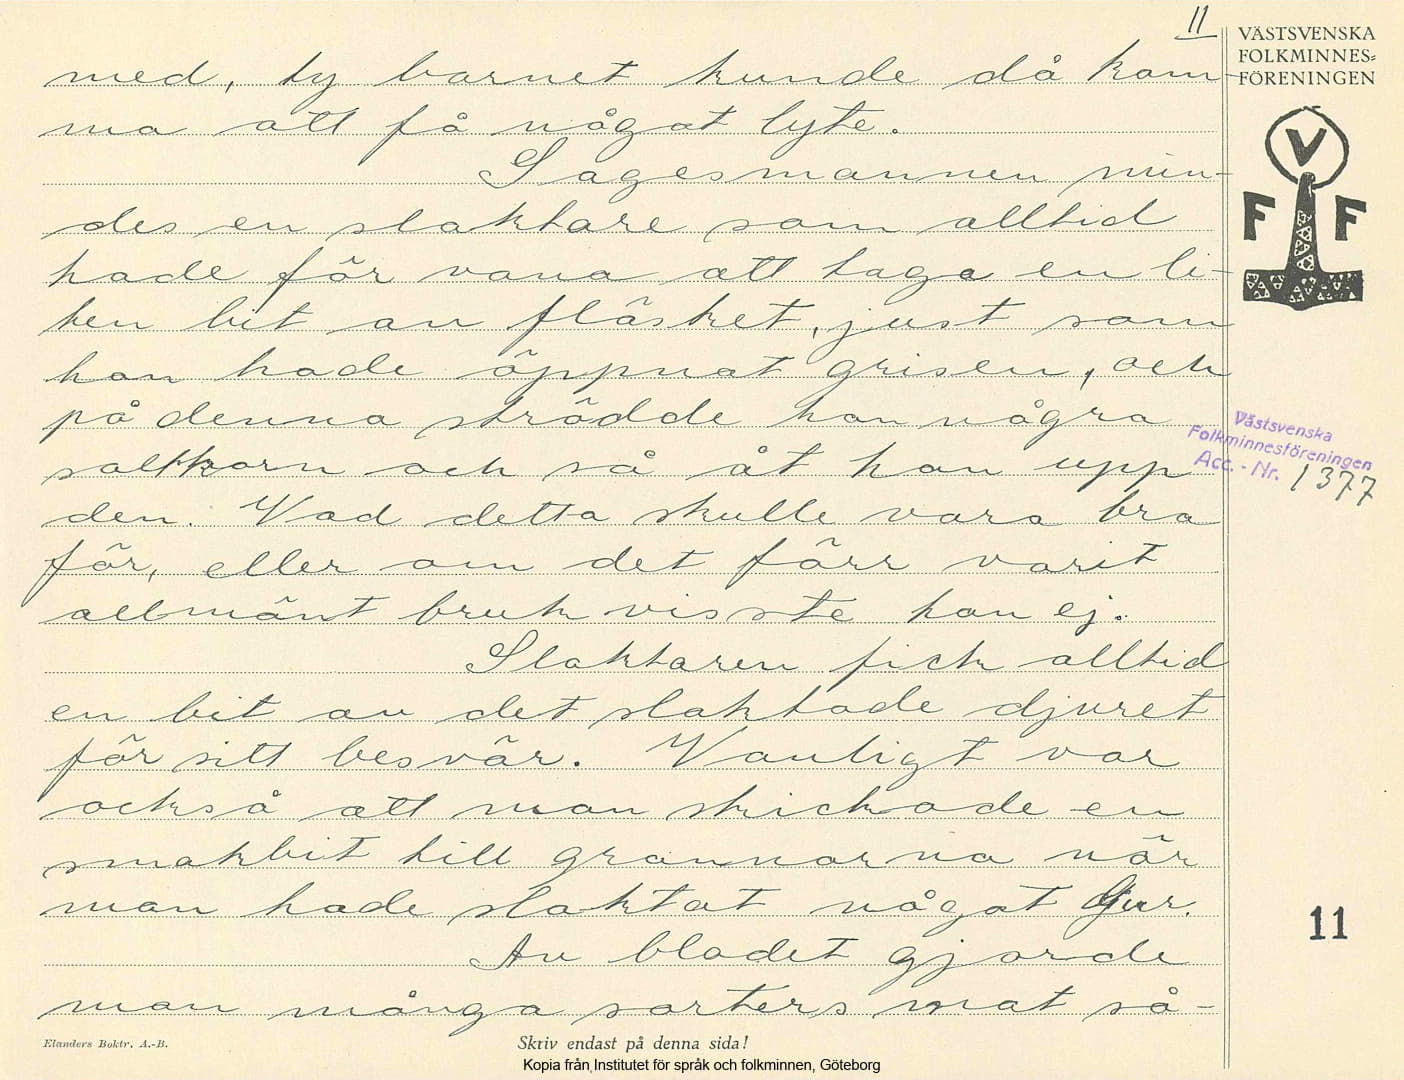 11
VÄSTSVENSKA
FOLKMINNES=
FÖRENINGEN
V
F F
med, ty barnet kunde då kom-
ma att få något lyte.
Sagesmannen min-
des en slaktare som alltid
hade för vana att taga en li-
ten bit av fläsket, just som
han hade öppnat grisen, och
på denna strödde han några
saltkorn och så åt han upp
den. Vad detta skulle vara bra
för, eller om det förr varit
allmänt bruk visste han ej.
Slaktaren fick alltid
en bit av det slaktade djuret
för sitt besvär. Vanligt var
också att man skickade en
smakbit till grannarna när
man hade slaktat något djur.
Av blodet gjorde
man många sorters mat så-
Västsvenska
Folkminnesföreningen
Acc. - Nr. 1377
11
Elanders Boktr. A.-B.
Skriv endast på denna sida!
Kopia från Institutet för språk och folkminnen, Göteborg